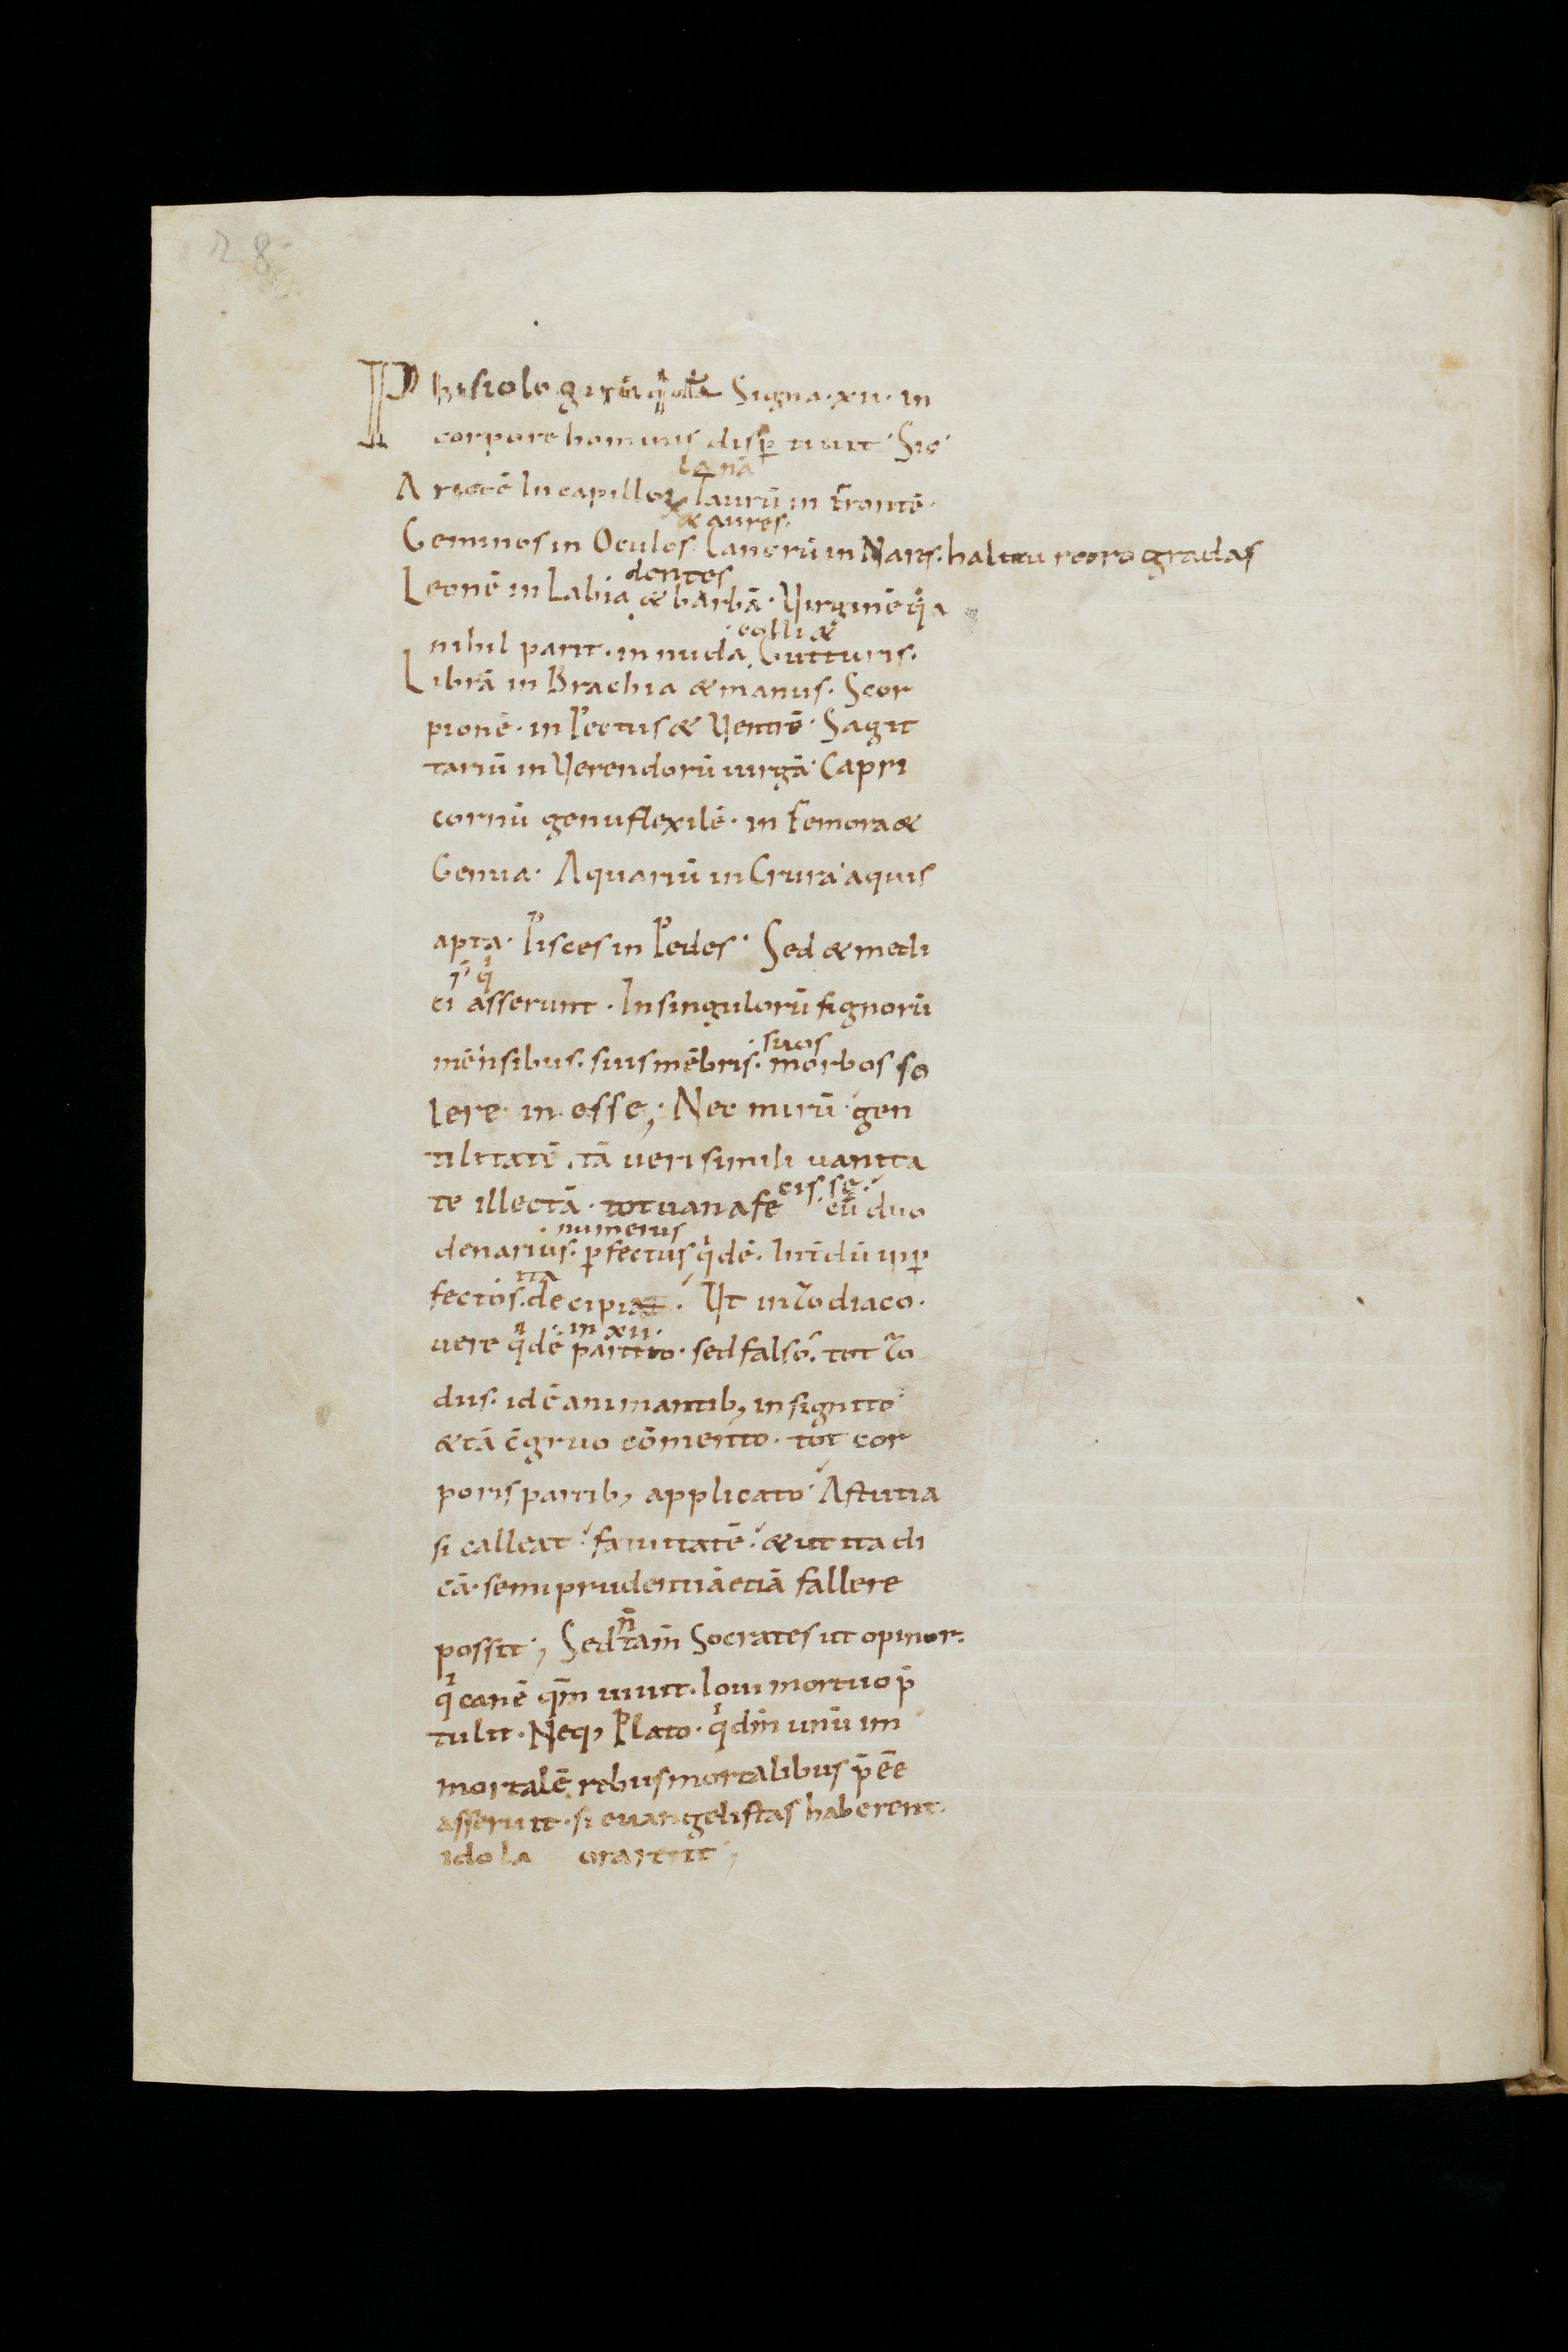 28
Phisiologi Signa · xii · in
corpore hominis disp̱ tiunt · Sic ·
lanā
Arietē In capilloꝝ Taurū in Frontē ·
& aures ·
Geminos in Oculos · Cancrū in Nares · halitu retrogradas
dentes
Leonē in Labia & barbā · Virginē q̇a
· colli &
nihil parit · in nuda Gutturis ·
Librā in Brachia & manus · Scor
pionē · in Pectus & Ventrē · Sagit
tariū in Verendorū uirgā · Capri
cornū genuflexilē · in Femora &
Genua · Aquariū in Crura · aquis
apta · Pisces in Pedes · Sed & medi
ci asserunt · In singulorū signorū
suos
mēnsibus · suis mēbris · morbos so
lere · in esse ; Nec mirū · gen
tilitatē · tā uerisimili uanita
cis se ·
te illectā · tot uana fe cū duo
· numerus
denarius · ꝑfectus q̇dē · Int̄dū inꝑ
ita
fectos · decipiat · Ut in Zodiaco ·
· in xii ·
uere q̇dē partito · sed falso · tot Zo
diis · idē animantib; insignito ·
& tā c̄gruo cōmento · tot cor
poris partib; applicato · Astutia
si calleat · fatuitatē · & ut ita di
cā · semiprudentiā etiā fallere
n̄
possit ·; Sed tam̄ Socrates ut opinor ·
q̇ canē qm̄ uiuit · Ioui mortuo p̄
tulit · Neq; Plato · q̇ dm̄ unū im
mortalē rebus mortalibus p̄ēe
asseruit · si euangelistas haberent ·
idola orarent ·;